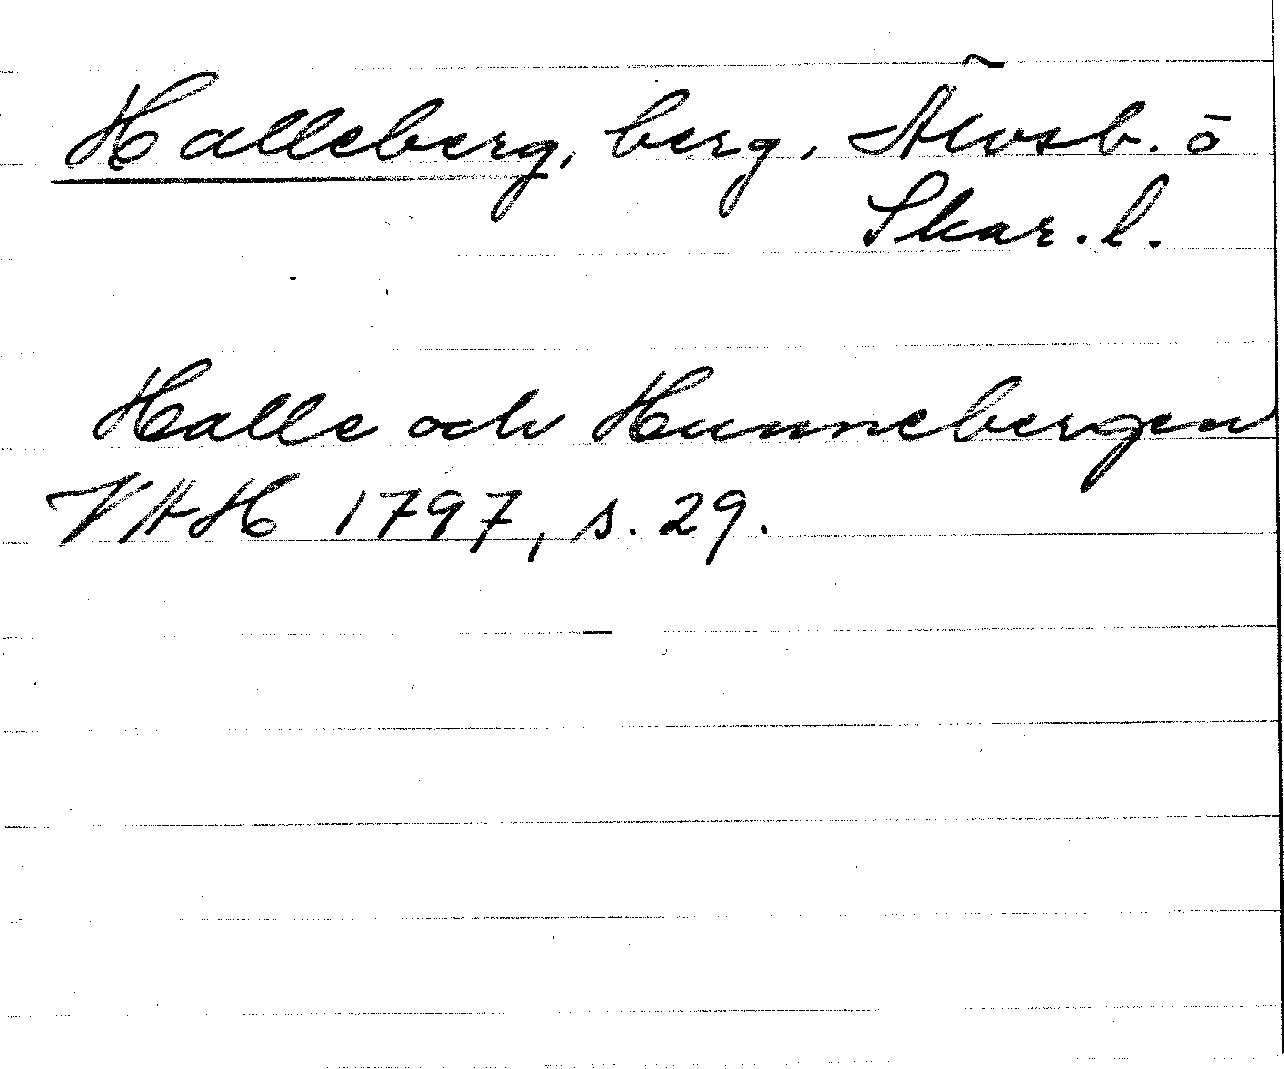 Halleberg, berg, Älvsb. o
Skar. l.
Halle och Hunnebergen
VAH 1797, s. 29.